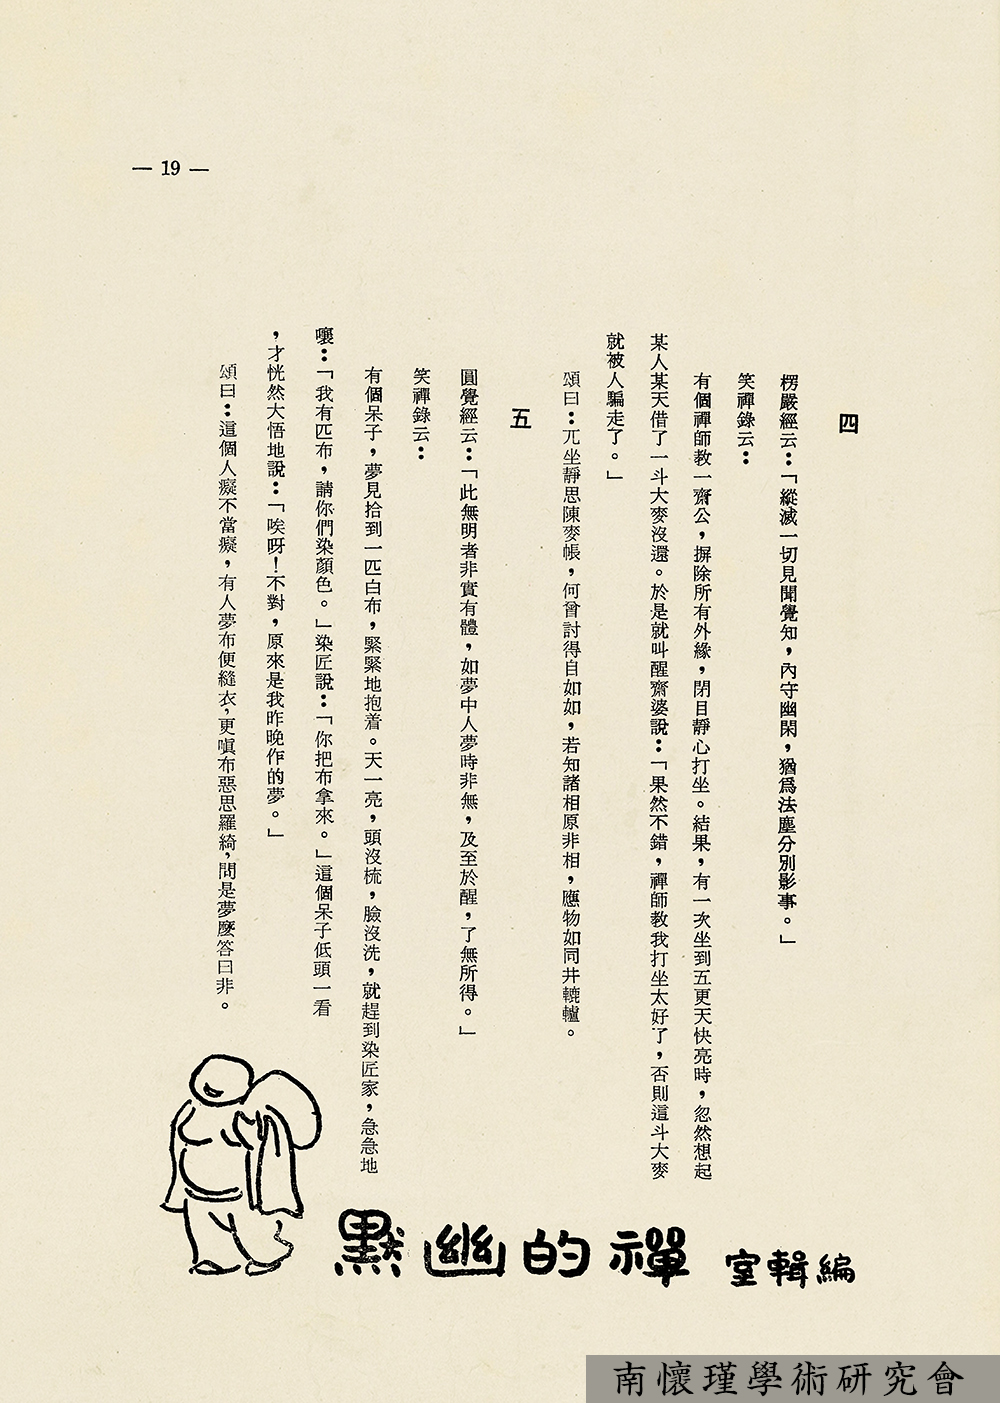 — 19 —
四
楞嚴經云：「縱滅一切見聞覺知，內守幽閑，猶爲法塵分別影事。」
笑禪錄云：
有個禪師教一齋公，摒除所有外緣，閉目靜心打坐。結果，有一次坐到五更天快亮時，忽然想起
某人某天借了一斗大麥沒還。於是就叫醒齋婆說：「果然不錯，禪師教我打坐太好了，否則這斗大麥
就被人騙走了。」
頌曰：兀坐靜思陳麥帳，何曾討得自如如，若知諸相原非相，應物如同井轆轤。
五
圓覺經云：「此無明者非實有體，如夢中人夢時非無，及至於醒，了無所得。」
笑禪錄云：
有個呆子，夢見拾到一匹白布，緊緊地抱着。天一亮，頭沒梳，臉沒洗，就趕到染匠家，急急地
嚷：「我有匹布，請你們染顏色。」染匠說：「你把布拿來。」這個呆子低頭一看
，才恍然大悟地說：「唉呀！不對，原來是我昨晚作的夢。」
頌曰：這個人癡不當癡，有人夢布便縫衣，更嗔布惡思羅綺，問是夢麼答曰非。
默幽的禪
室輯編
南懷瑾學術研究會